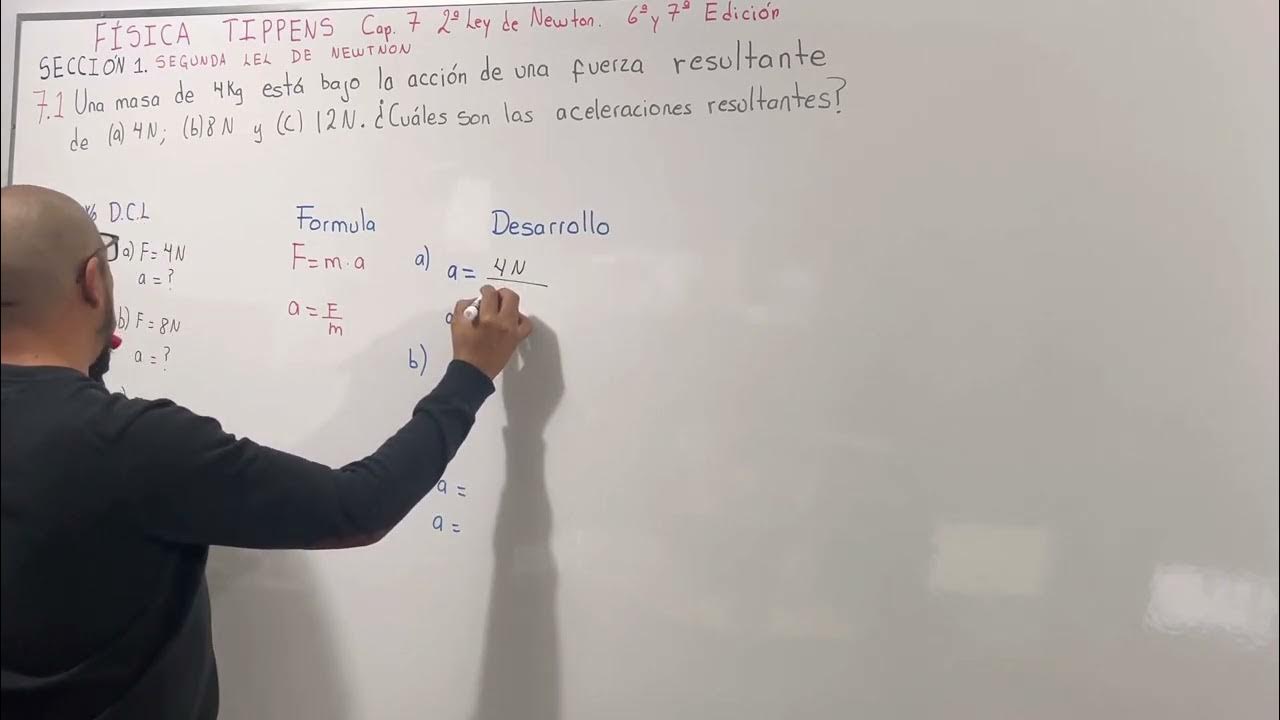 FÍSICA TIPPENS Cap. 7 2ª Ley de Newton. 6ª y 7ª Edición
SECCIÓN 1. SEGUNDA LEL DE NEWTNON
7.1 Una masa de 4Kg está bajo la acción de una fuerza resultante
de (a) 4N; (b) 8N y (c) 12N. ¿Cuáles son las aceleraciones resultantes?
D.C.L Formula Desarrollo
a) F=4N F=m·a a) a= 4N
a=?
b) F=8N a=F/m
a=? b)
a=
a=